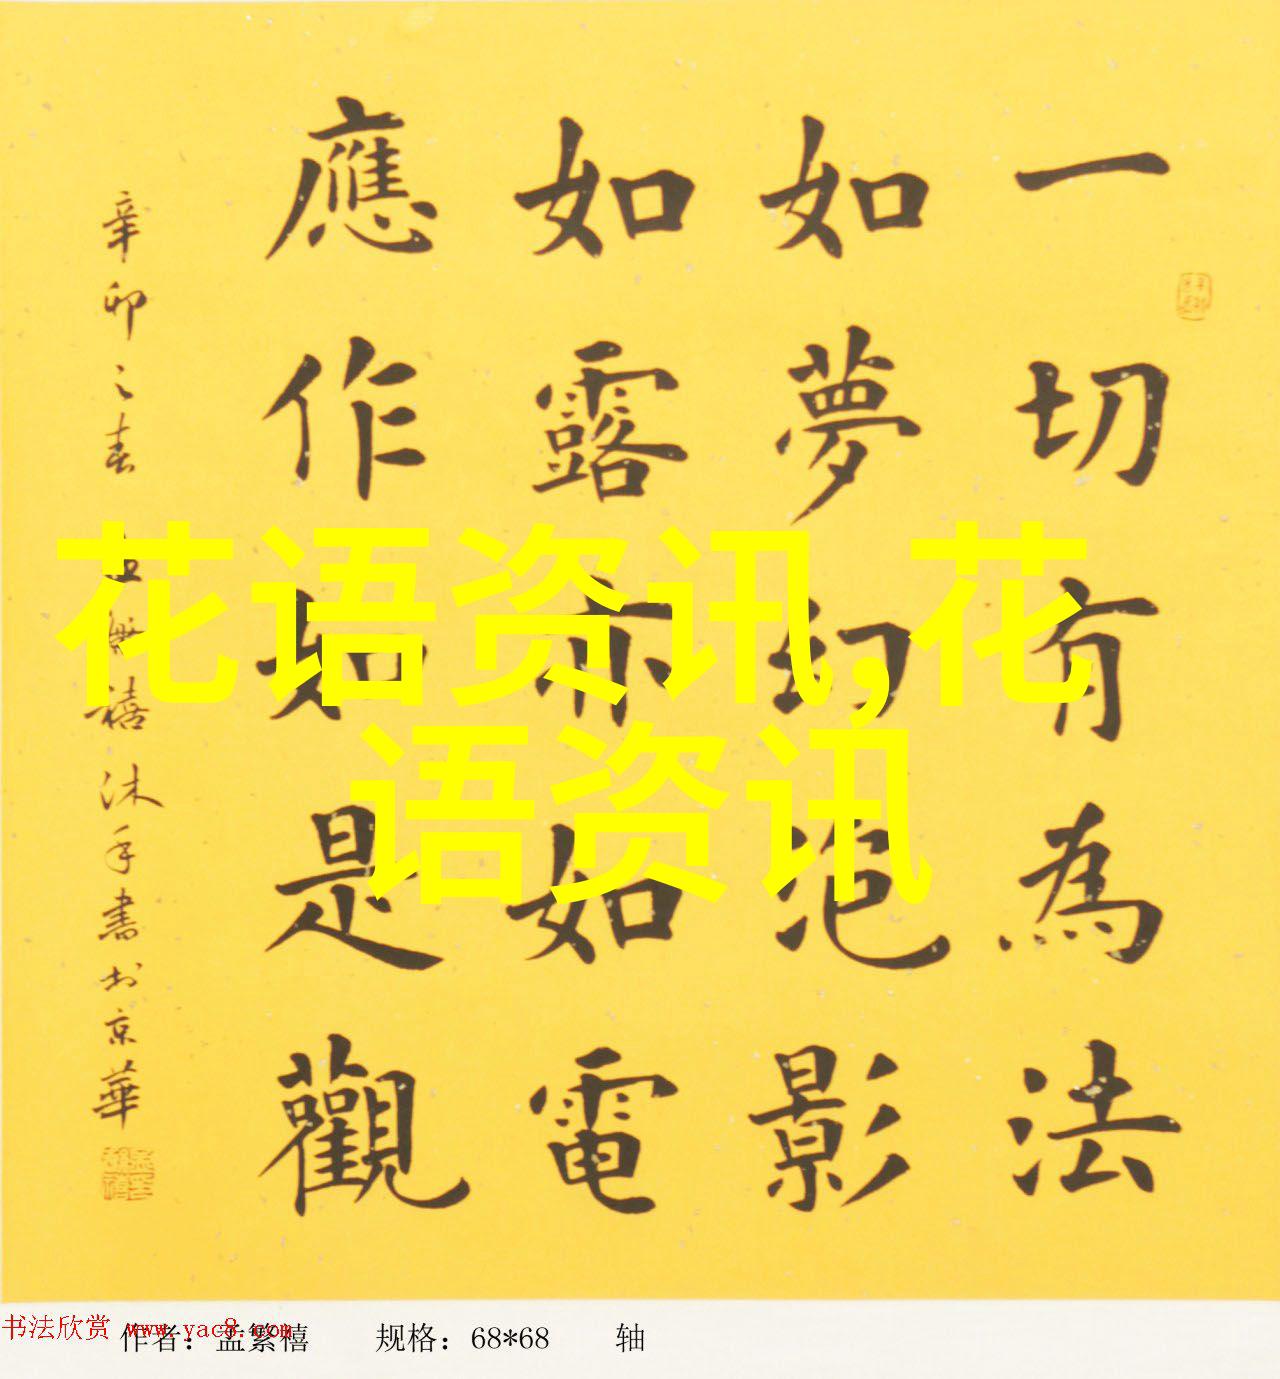 一切有為法
如夢幻泡影
如露亦如電
應作如是觀
辛卯之春 孟繁禧沐手書於京華
花语资讯,花
语资讯
书法欣赏 www.yac8.com
作者：孟繁禧 规格：68*68 轴